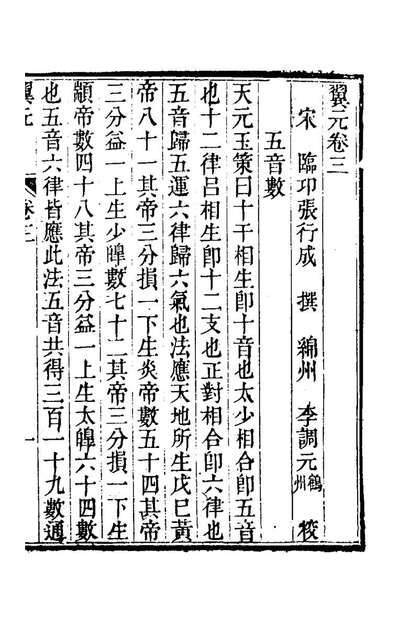 翼元卷三
宋 臨卭張行成 撰 綿州 李調元 鶴州 校
五音數
天元玉策曰十干相生卽十音也太少相合卽五音
也十二律呂相生卽十二支也正對相合卽六律也
五音歸五運六律歸六氣也法應天地所生戊巳黃
帝八十一其帝三分損一下生炎帝數五十四其帝
三分益一上生少皥數七十二其帝三分損一下生
顓帝數四十八其帝三分益一上生太皥六十四數
也五音六律皆應此法五音共得三百一十九數通
翼元
卷三
一